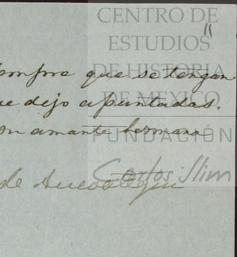 CENTRO DE
ESTUDIOS
DE HISTORIA
DE MEXICO
FUNDACIÓN
Carlos Slim
11
que se tengan
dejo apuntadas.
amante hermana
de